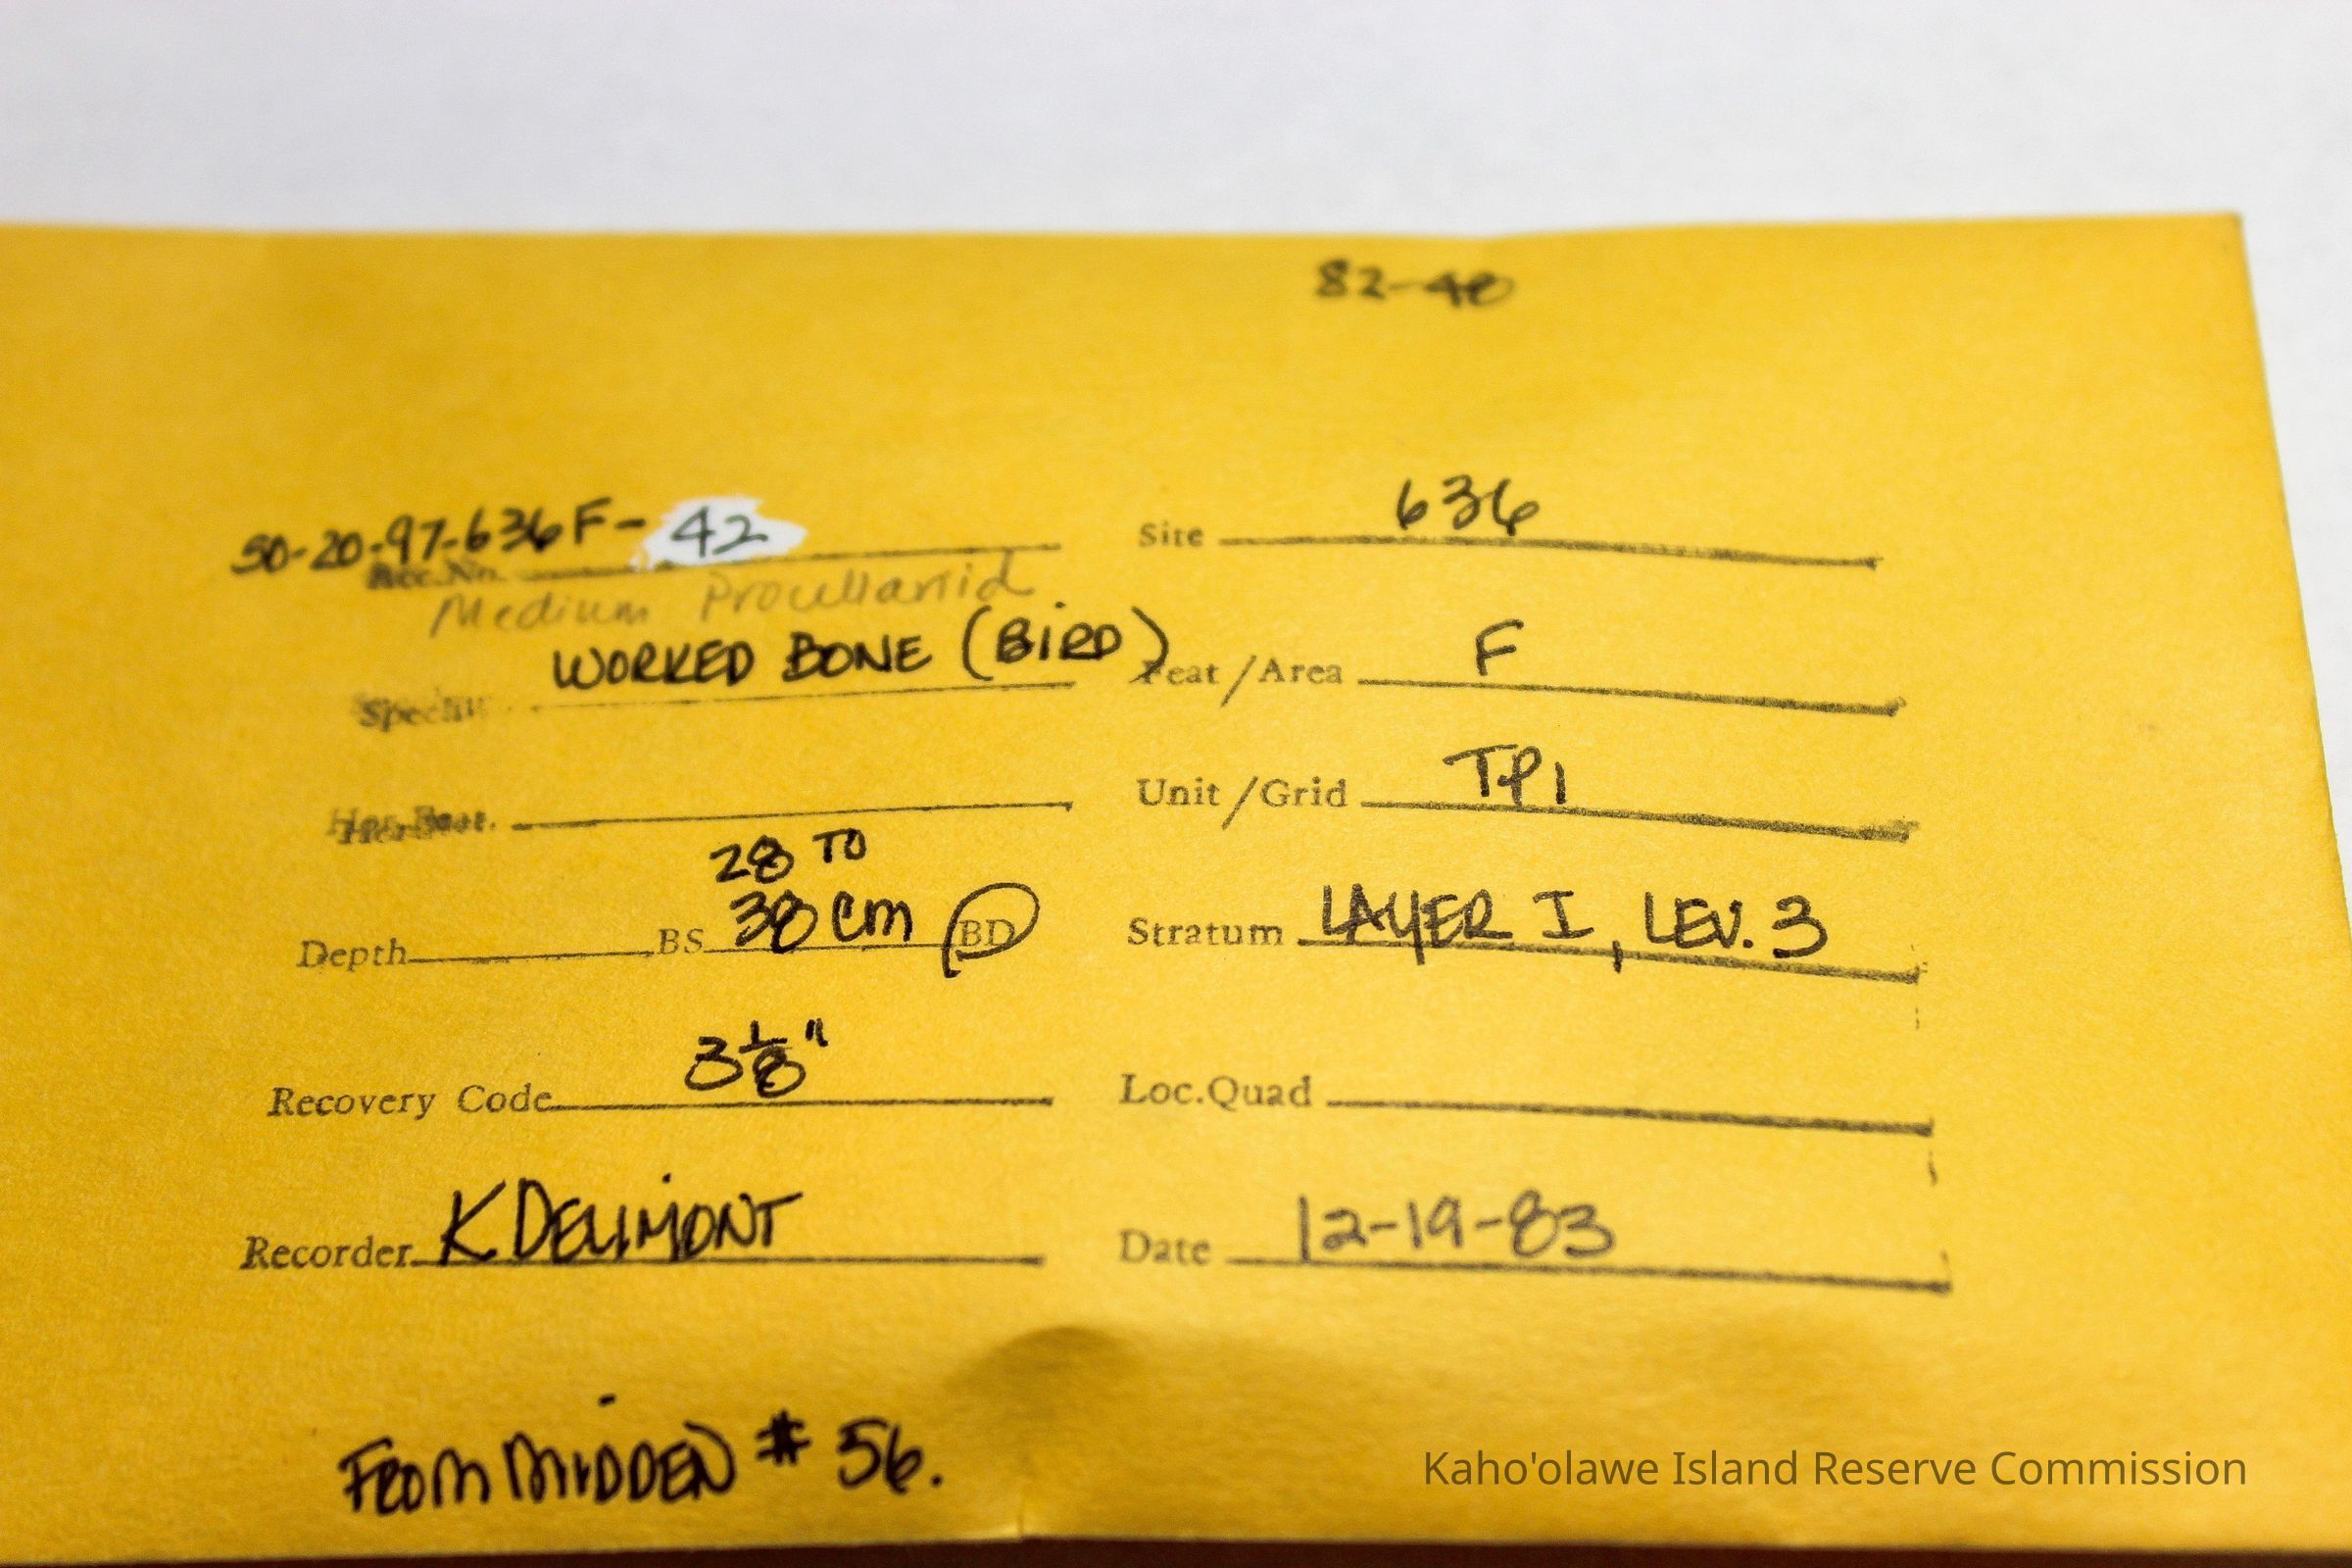 82-40
50-20-97-636F-42
Acc.No.
Site 636
Medium Procellariid
WORKED BONE (BIRD)
Feat/Area F
Unit/Grid TP1
28 TO
Depth BS 38 cm BD
Stratum LAYER I, LEV. 3
Recovery Code 3 1/8"
Loc.Quad
Recorder K DELIMONT
Date 12-19-83
FROM MIDDEN # 56.
Kaho'olawe Island Reserve Commission